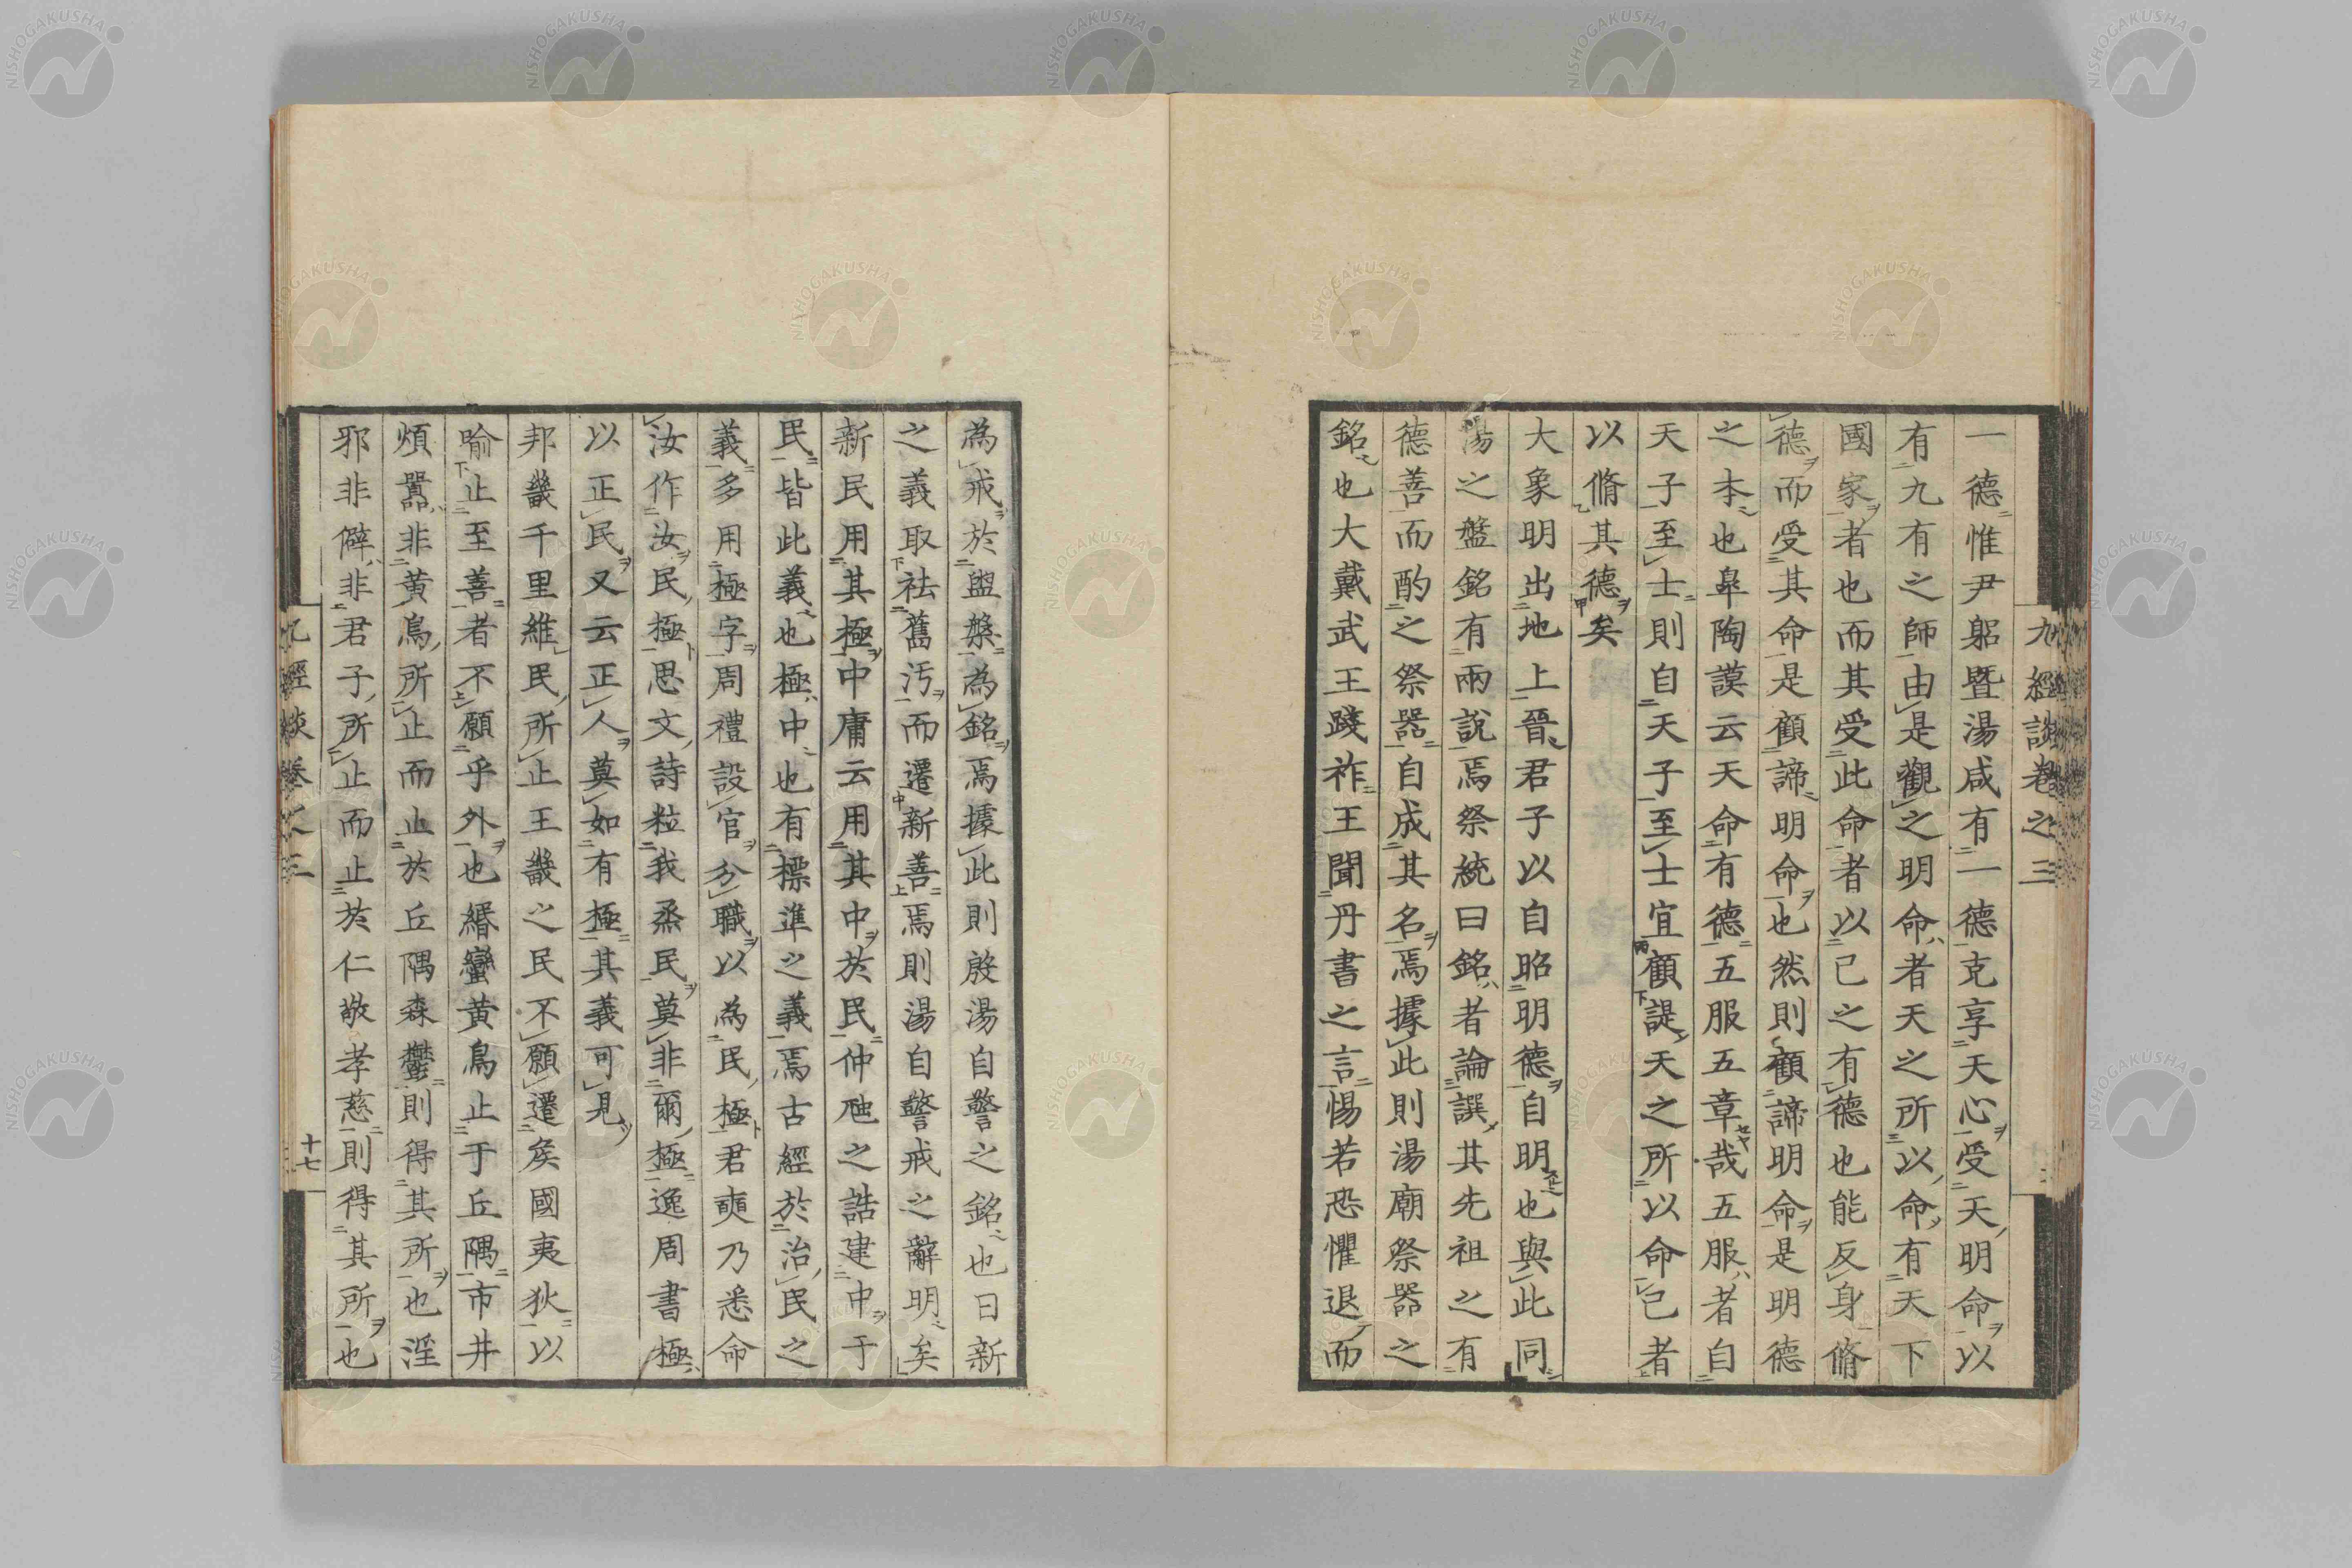 九經談卷之三
一德惟尹躬曁湯咸有一德克享天心受天明命以
有九有之師由是觀之明命者天之所以命有天下
國家者也而其受此命者以己之有德也能反身脩
德而受其命是顧諦明命也然則顧諦明命是明德
之本也皐陶謨云天命有德五服五章哉五服者自
天子至士則自天子至士宜顧諟天之所以命己者
以脩其德矣
大象明出地上晉君子以自昭明德自明也與此同
湯之盤銘有兩說焉祭統曰銘者論譔其先祖之有
德善而酌之祭器自成其名焉據此則湯廟祭器之
銘也大戴武王踐祚王聞丹書之言惕若恐懼退而
為戒於盥槃為銘焉據此則殷湯自警之銘也日新
之義取袪舊汚而遷新善焉則湯自警戒之辭明矣
新民用其極中庸云用其中於民仲虺之誥建中于
民皆此義也極中也有標準之義焉古經於治民之
義多用極字周禮設官分職以為民極君奭乃悉命
汝作汝民極思文詩粒我烝民莫非爾極逸周書極
以正民又云正人莫如有極其義可見
邦畿千里維民所止王畿之民不願遷矦國夷狄以
喻止至善者不願乎外也緡蠻黃鳥止于丘隅市井
煩囂非黃鳥所止而止於丘隅森鬱則得其所也淫
邪非僻非君子所止而止於仁敬孝慈則得其所也
九經談卷之三
十七
NISHOGAKUSHA